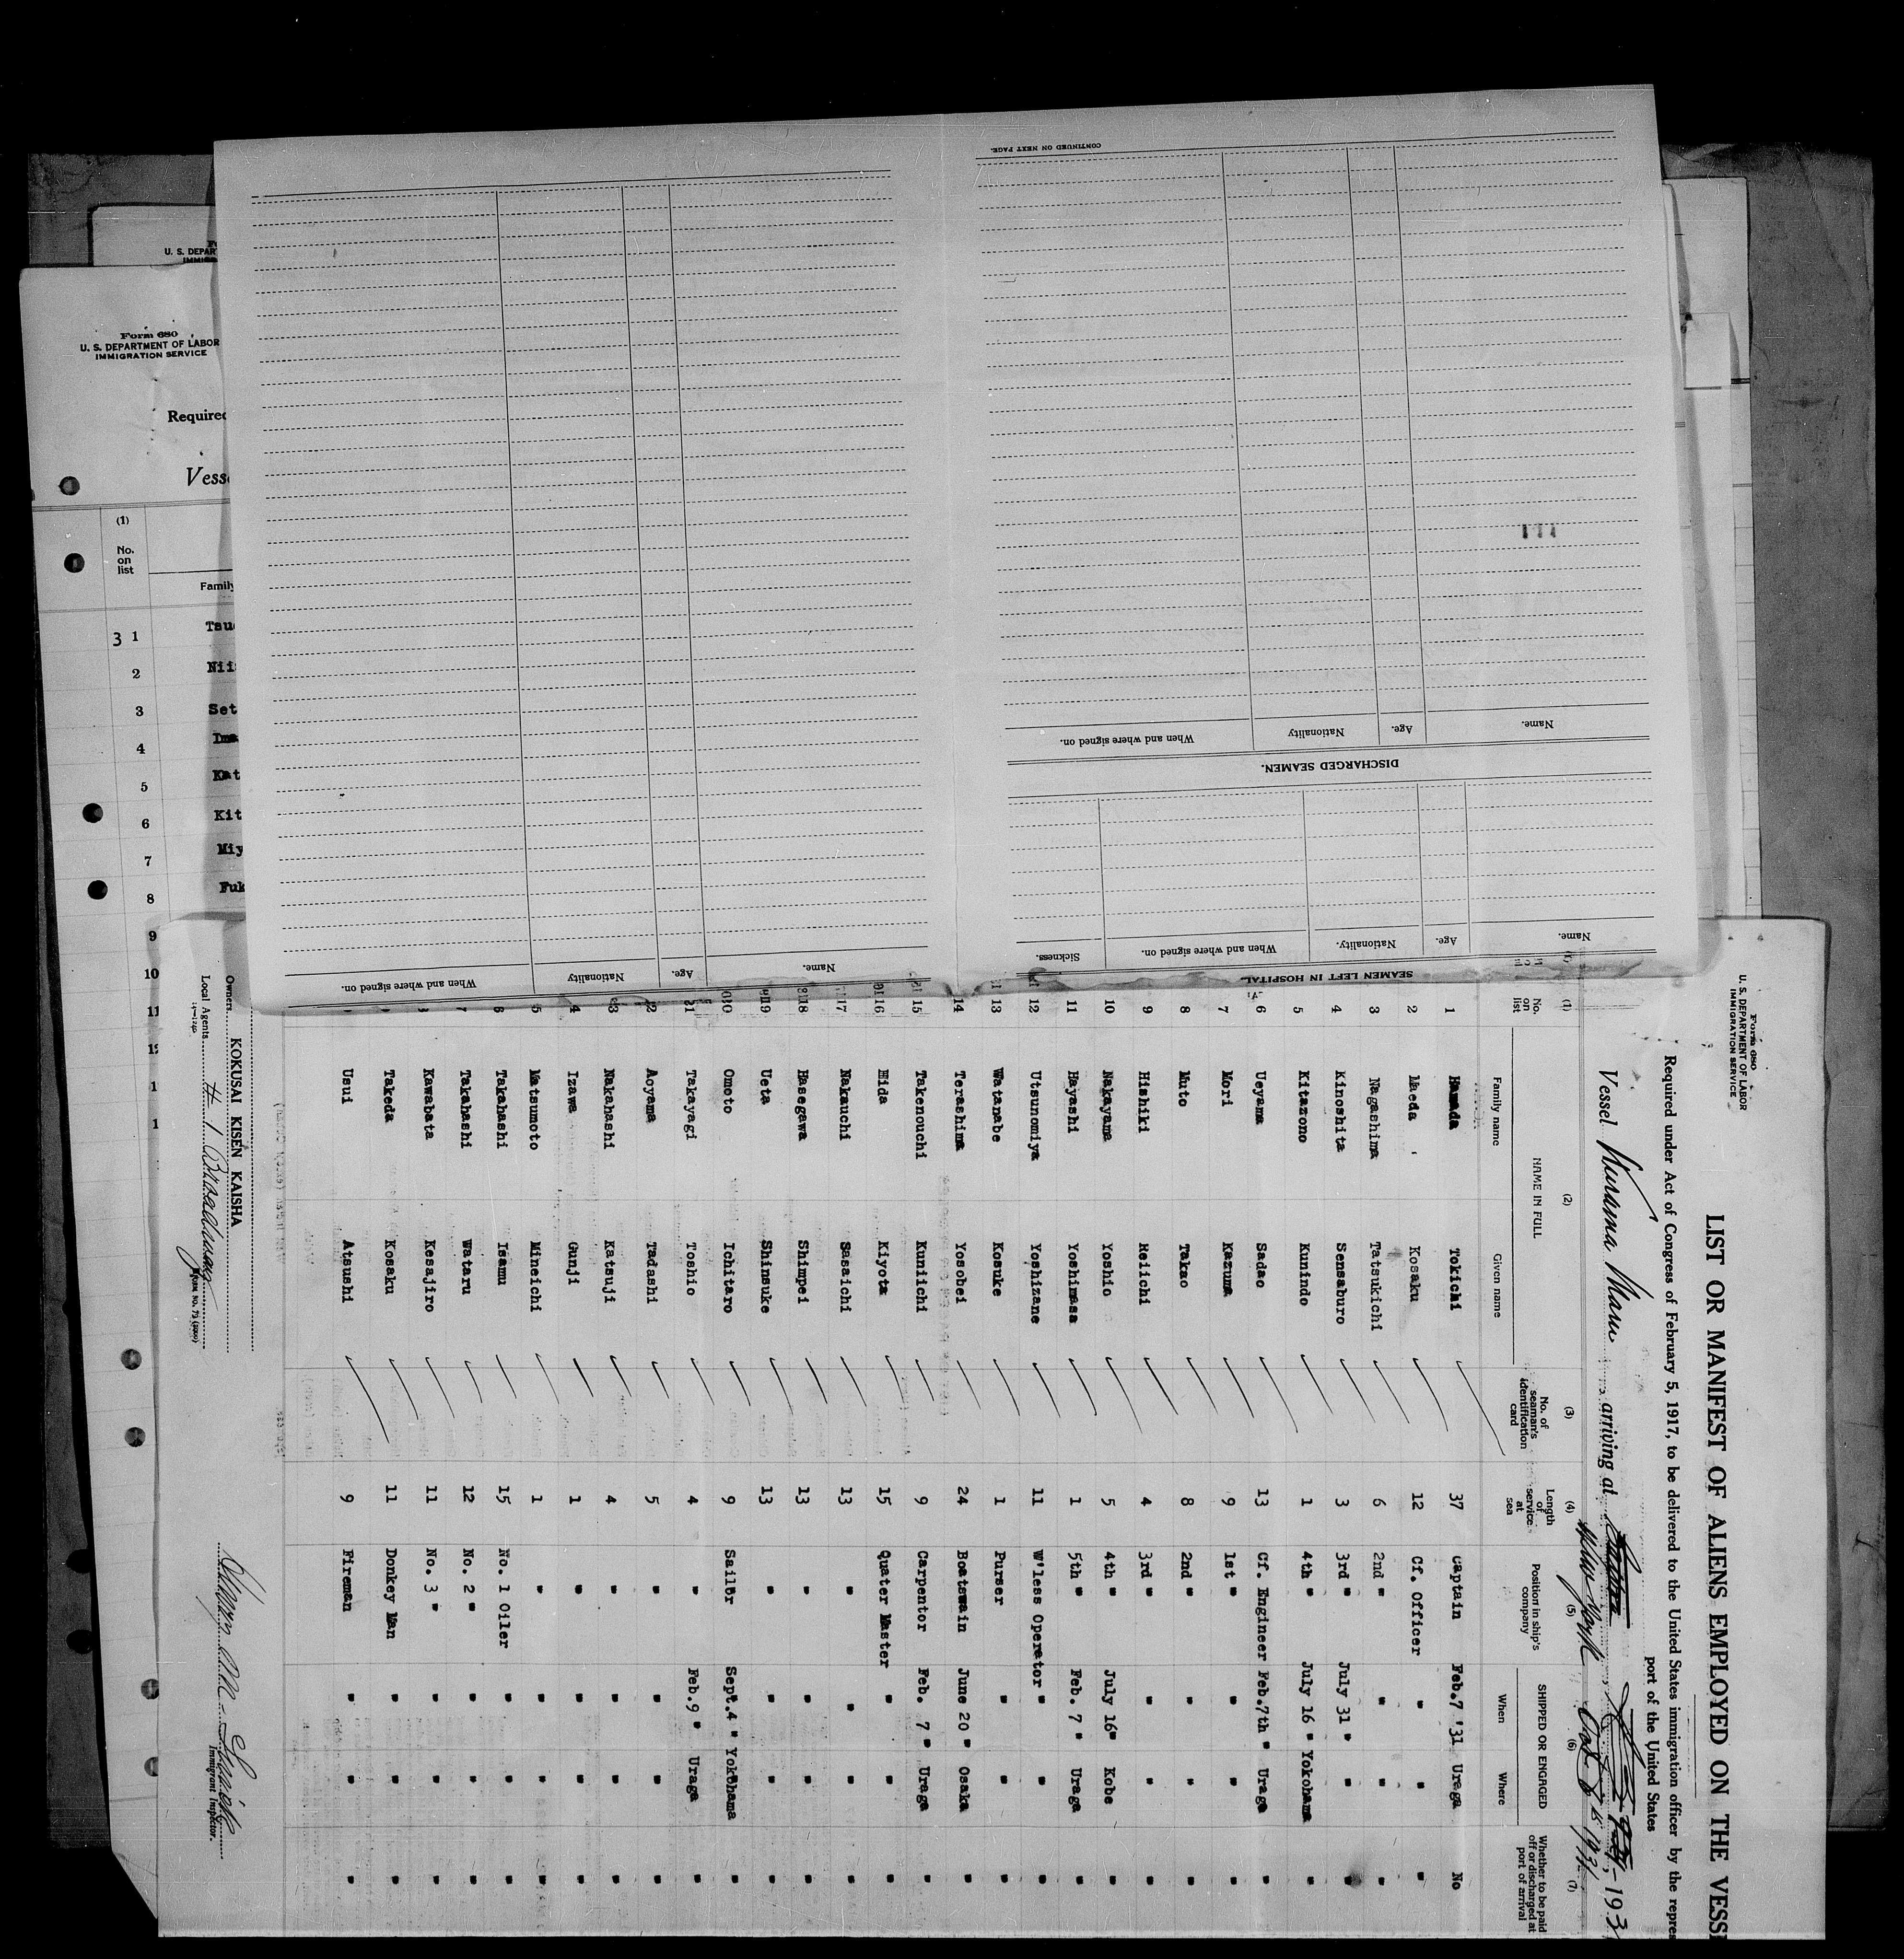 CONTINUED ON NEXT PAGE.
When and where signed on.
Nationality
Age.
Name.
DISCHARGED SEAMEN.
When and where signed on.
Nationality
Age.
Name.
SEAMEN LEFT IN HOSPITAL
Sickness.
When and where signed on.
Nationality.
Age.
Name.
U. S. DEPAR
Form 680
U. S. DEPARTMENT OF LABOR
IMMIGRATION SERVICE
Required
Vess
(1)
No.
on
list
Family
3 1 Tsu
2 Nii
3 Set
4 Ima
5 Kat
6 Kit
7 Miy
8 Fuk
9
10
11
Form 680
U. S. DEPARTMENT OF LABOR
IMMIGRATION SERVICE
LIST OR MANIFEST OF ALIENS EMPLOYED ON THE VESS
Required under Act of Congress of February 5, 1917, to be delivered to the United States immigration officer by the repres
port of the United States
Vessel Kurama Maru, arriving at New York Oct 7th 1931, 193
(1) (2) (3) (4) (5) (6) (7)
No. on list
NAME IN FULL
Family name Given name
No. of seaman's identification card
Length of service at sea
Position in ship's company
SHIPPED OR ENGAGED
When Where
Whether to be paid off or discharged at port of arrival
1 Hamada Tokichi 37 Captain Feb.7 '31 Uraga No
2 Maeda Kosaku 12 Cf. Officer " " "
3 Nagashima Tatsukichi 6 2nd " " " "
4 Kinoshita Sensaburo 3 3rd " July 31 " " "
5 Kitazono Kunindo 1 4th " July 16 " Yokohama "
6 Ueyama Sadao 13 Cf. Engineer Feb.7th " Uraga "
7 Mori Kazuma 9 1st " " " "
8 Muto Takao 8 2nd " " " "
9 Hishiki Heiichi 4 3rd " " " "
10 Nakayama Yoshio 5 4th " July 16" Kobe "
11 Hayashi Yoshimasa 1 5th " Feb. 7 " Uraga "
12 Utsunomiya Yoshizane 11 W'less Operator " " "
13 Watanabe Kosuke 1 Purser " " "
14 Terashima Yosobei 24 Boatswain June 20 " Osaka "
15 Takenouchi Kuniichi 9 Carpentor Feb. 7 " Uraga "
16 Hida Kiyota 15 Quater Master " " "
17 Nakauchi Sasaichi 13 " " " "
18 Hasegawa Shimpei 13 " " " "
19 Ueta Shinsuke 13 " " " "
20 Omoto Ichitaro 9 Sailor Sept.4 " Yokohama "
21 Takayagi Toshio 4 " Feb.9 " Uraga "
2 Aoyama Tadashi 5 " " " "
3 Nakahashi Katsuji 4 " " " "
4 Izawa Gunji 1 " " " "
5 Matsumoto Mineichi 1 " " " "
6 Takahashi Isamu 15 No. 1 Oiler " " "
7 Takahashi Wataru 12 No. 2 " " " "
8 Kawabata Kesajiro 11 No. 3 " " " "
Takeda Kosaku 11 Donkey Man " " "
Usui Atsushi 9 Fireman " " "
Owners KOKUSAI KISEN KAISHA
Local Agents # 1 Broadway
Immigrant Inspector.